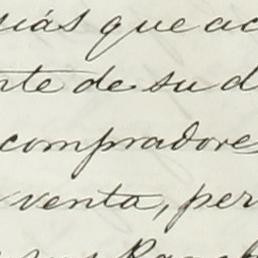 más que ac
nte de su d
compradores
venta, per